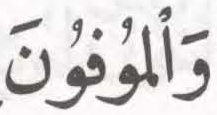 وَٱلْمُوفُونَ